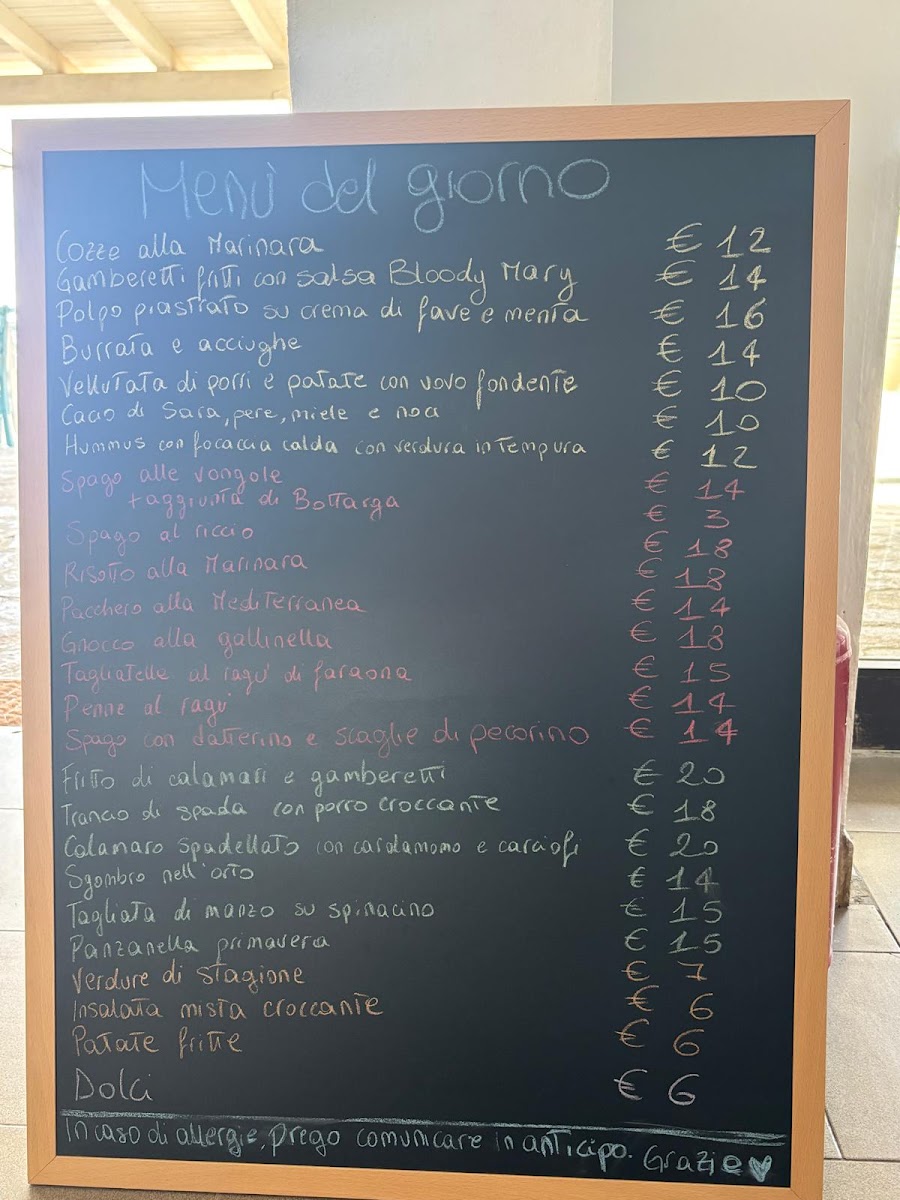 Menù del giorno
Cozze alla Marinara € 12
Gamberetti fritti con salsa Bloody Mary € 14
Polpo piastrato su crema di fave e menta € 16
Burrata e acciughe € 14
Vellutata di porri e patate con uovo fondente € 10
Cacio di Sara, pere, miele e noci € 10
Hummus con focaccia calda con verdura in Tempura € 12
Spago alle vongole € 14
+ aggiunta di Bottarga € 3
Spago al riccio € 18
Risotto alla Marinara € 18
Pacchero alla Mediterranea € 14
Gnocco alla gallinella € 18
Tagliatelle al ragù di faraona € 15
Penne al ragù € 14
Spago con datterino e scaglie di pecorino € 14
Fritto di calamari e gamberetti € 20
Trancio di spada con porro croccante € 18
Calamaro spadellato con cardamomo e carciofi € 20
Sgombro nell'orto € 14
Tagliata di manzo su spinacino € 15
Panzanella primavera € 15
Verdure di stagione € 7
Insalata mista croccante € 6
Patate fritte € 6
Dolci € 6
In caso di allergie, prego comunicare in anticipo. Grazie ♥